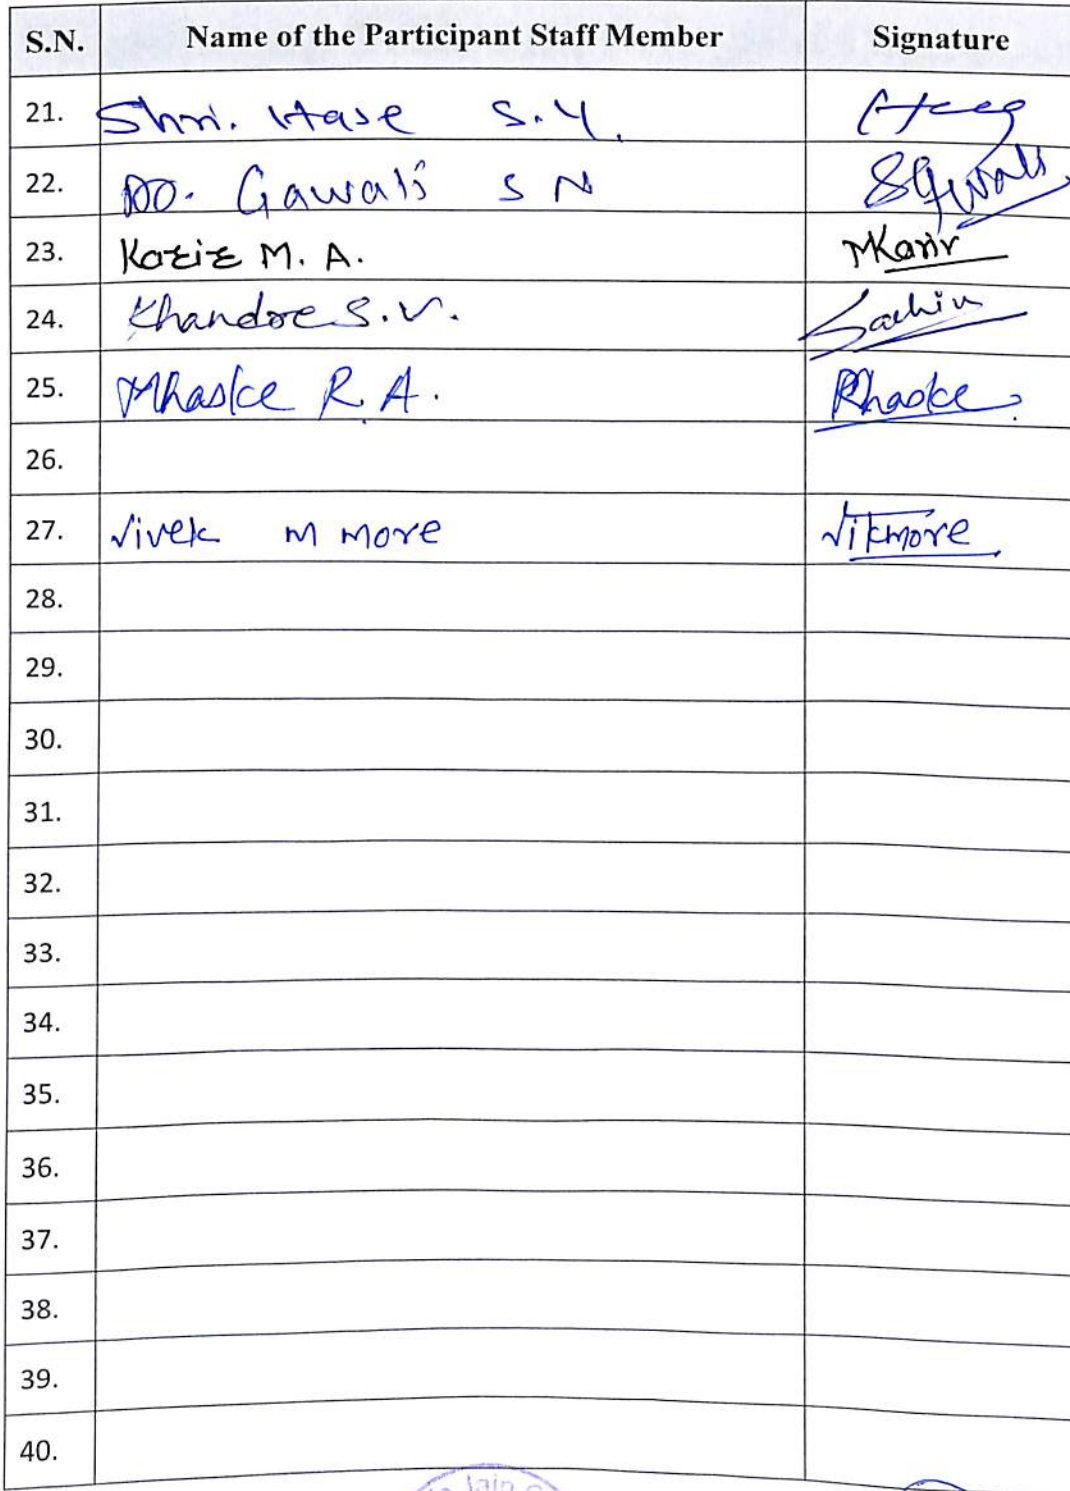 S.N. Name of the Participant Staff Member Signature
21. Shri. Hase S.Y.
22. Dr. Gawali S N SGawali
23. Kaziz M. A. MKaziz
24. Khandre S.V. Sachin
25. Mhaske R.A. Rhaske
26.
27. Vivek M More Vikmore
28.
29.
30.
31.
32.
33.
34.
35.
36.
37.
38.
39.
40.
Jain